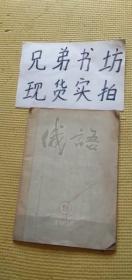 兄弟书坊
现货实拍
俄語